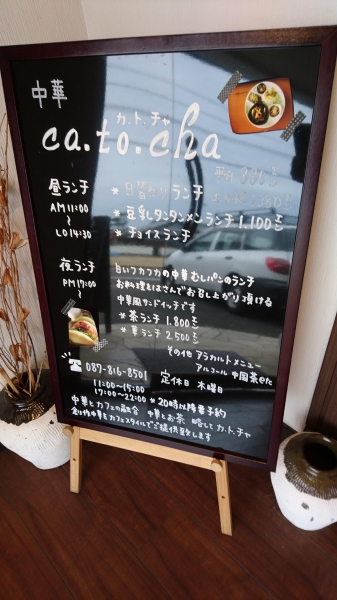 中華
カ.ト.チャ
ca.to.cha
昼ランチ
AM11:00
〜
LO14:30
平日
*日替わりランチ
*豆乳タンタンメンランチ 1.100
*チョイスランチ
夜ランチ
PM17:00
〜
白いフカフカの中華むしパンのランチ
お料理をはさんでお召し上がり頂ける
中華風サンドイッチです
*茶ランチ 1.800
*華ランチ 2.500
その他 アラカルトメニュー
アルコール 中国茶etc
☎087-816-8501
定休日 木曜日
11:00〜15:00
17:00〜22:00 *20時以降要予約
中華とカフェの融合 中華とお茶 略してカ.ト.チャ
創作中華をカフェスタイルでご提供致します